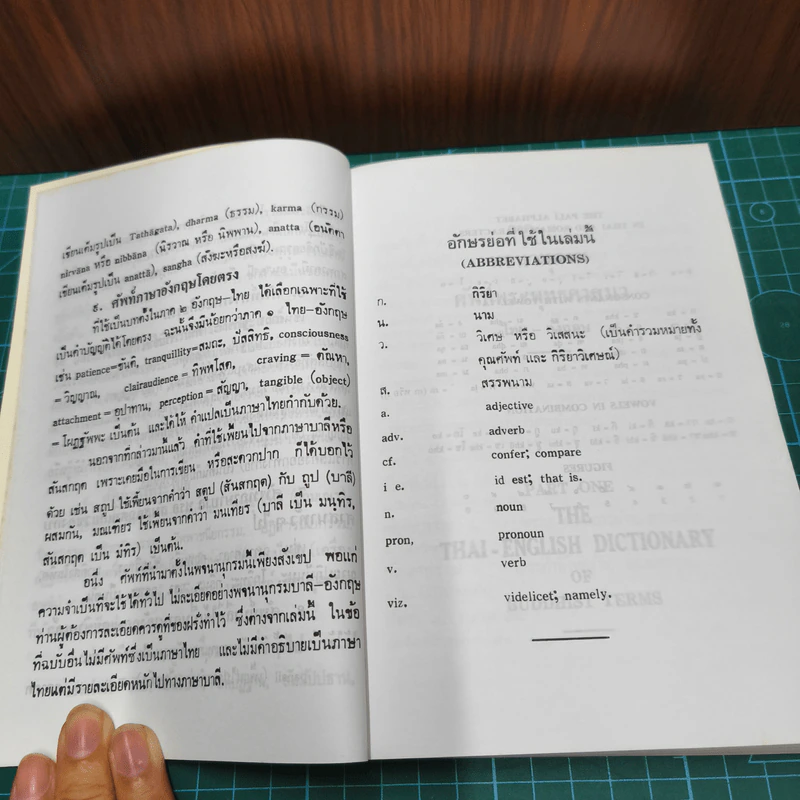 เขียนเต็มรูปเป็น Tathāgata), dharma (ธรรม), karma (กรรม)
nirvāna หรือ nibbāna (นิรวาณ หรือ นิพพาน), anatta (อนัตตา
เขียนเต็มรูปเป็น anattā), sangha (สังฆะหรือสงฆ์).
๖. ศัพท์ภาษาอังกฤษโดยตรง
ที่ใช้เป็นบทตั้งในภาค ๒ อังกฤษ–ไทย ได้เลือกเฉพาะที่ใช้
เป็นคำบัญญัติได้โดยตรง ฉะนั้นจึงมีน้อยกว่าภาค ๑ ไทย–อังกฤษ
เช่น patience=ขันติ, tranquillity=สมถะ, ปัสสัทธิ, consciousness
=วิญญาณ, clairaudience=ทิพพโสต, craving=ตัณหา,
attachment=อุปาทาน, perception=สัญญา, tangible (object)
=โผฏฐัพพะ เป็นต้น และได้ให้คำแปลเป็นภาษาไทยกำกับด้วย.
นอกจากที่กล่าวมานี้แล้ว คำที่ใช้เพี้ยนไปจากภาษาบาลีหรือ
สันสกฤต เพราะเคยมือในการเขียน หรือสะดวกปาก ก็ได้บอกไว้
ด้วย เช่น สถูป ใช้เพี้ยนจากคำว่า สตูป (สันสกฤต) กับ ถูป (บาลี)
ผสมกัน, มณเฑียร ใช้เพี้ยนจากคำว่า มนเทียร (บาลี เป็น มนฺทิร,
สันสกฤต เป็น มํทิร) เป็นต้น.
อนึ่ง ศัพท์ที่นำมาตั้งในพจนานุกรมนี้เพียงสังเขป พอแก่
ความจำเป็นที่จะใช้ได้ทั่วไป ไม่ละเอียดอย่างพจนานุกรมบาลี–อังกฤษ
ท่านผู้ต้องการละเอียดควรดูที่ของฝรั่งทำไว้ ซึ่งต่างจากเล่มนี้ ในข้อ
ที่ฉบับอื่นไม่มีศัพท์ซึ่งเป็นภาษาไทย และไม่มีคำอธิบายเป็นภาษา
ไทยแต่มีรายละเอียดหนักไปทางภาษาบาลี.
อักษรย่อที่ใช้ในเล่มนี้
(ABBREVIATIONS)
ก. กิริยา
น. นาม
ว. วิเศษ หรือ วิเสสนะ (เป็นคำรวมหมายทั้ง
คุณศัพท์ และ กิริยาวิเศษณ์)
ส. สรรพนาม
a. adjective
adv. adverb
cf. confer; compare
i e. id est; that is.
n. noun
pron, pronoun
v. verb
viz. videlicet; namely.